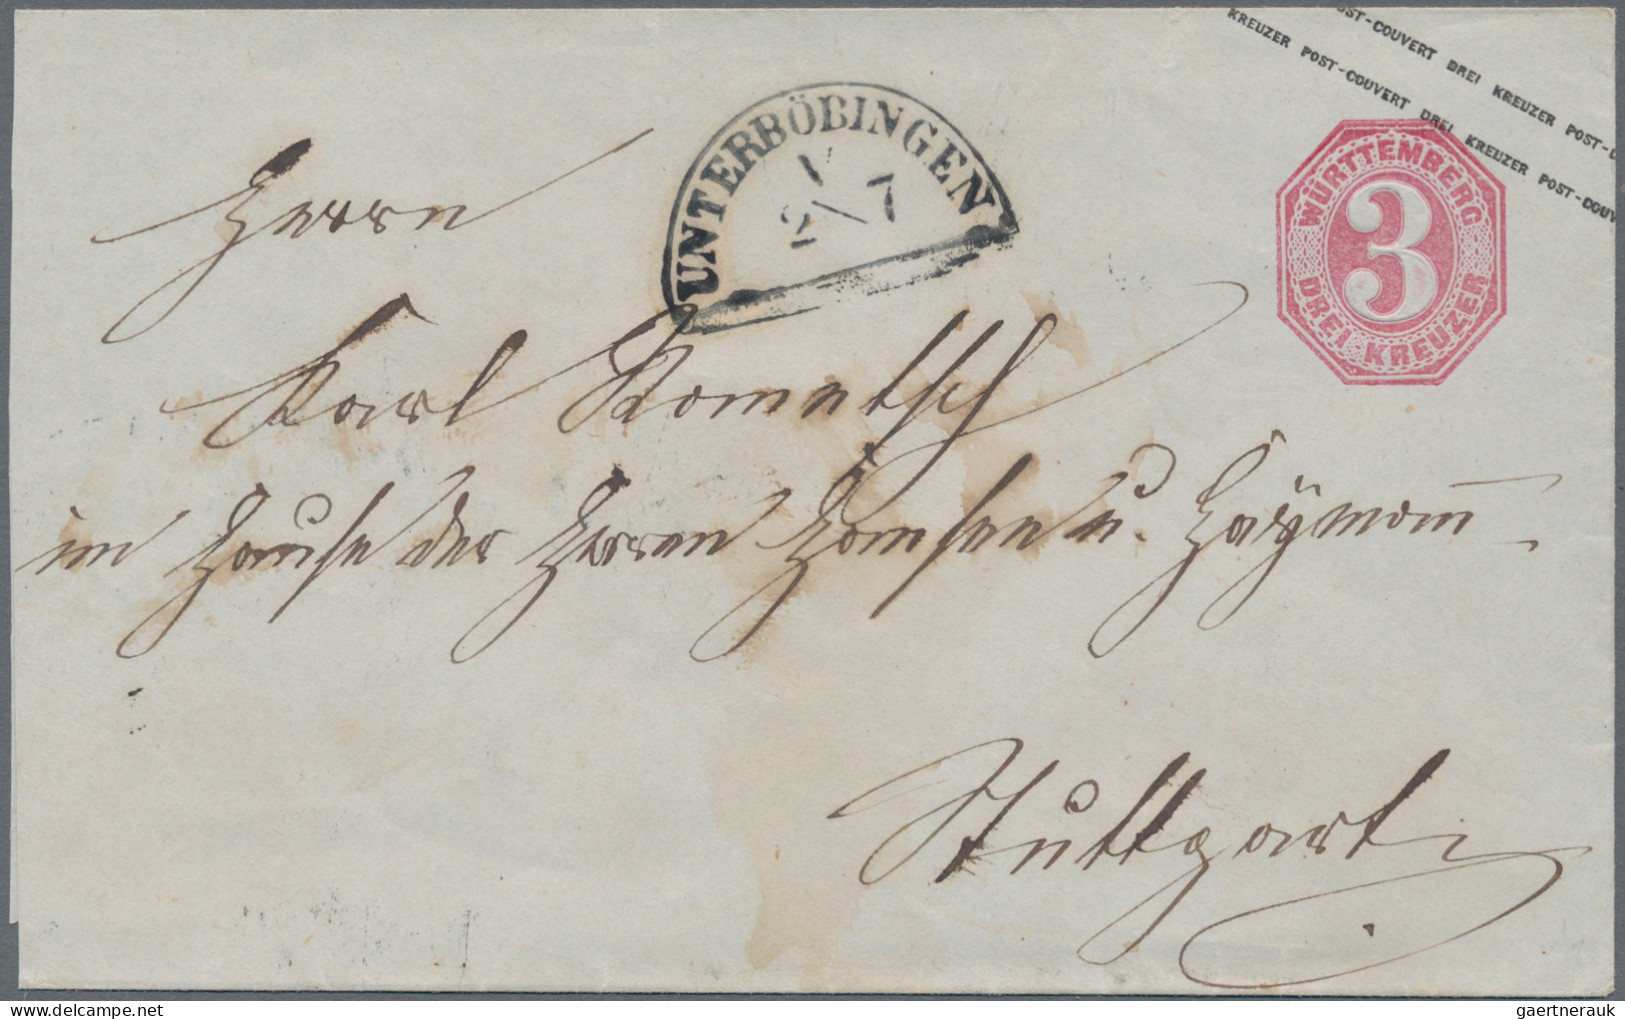 ST-COUVERT DREI KREUZER POST-C
KREUZER POST-COUVERT DREI KREUZER POST-COUV
UNTERBÖBINGEN
2 7
WÜRTTEMBERG
3
DREI-KREUZER
Herrn
Karl Kometsch
im Hause der Herren u.
Stuttgart
gaertnerauk